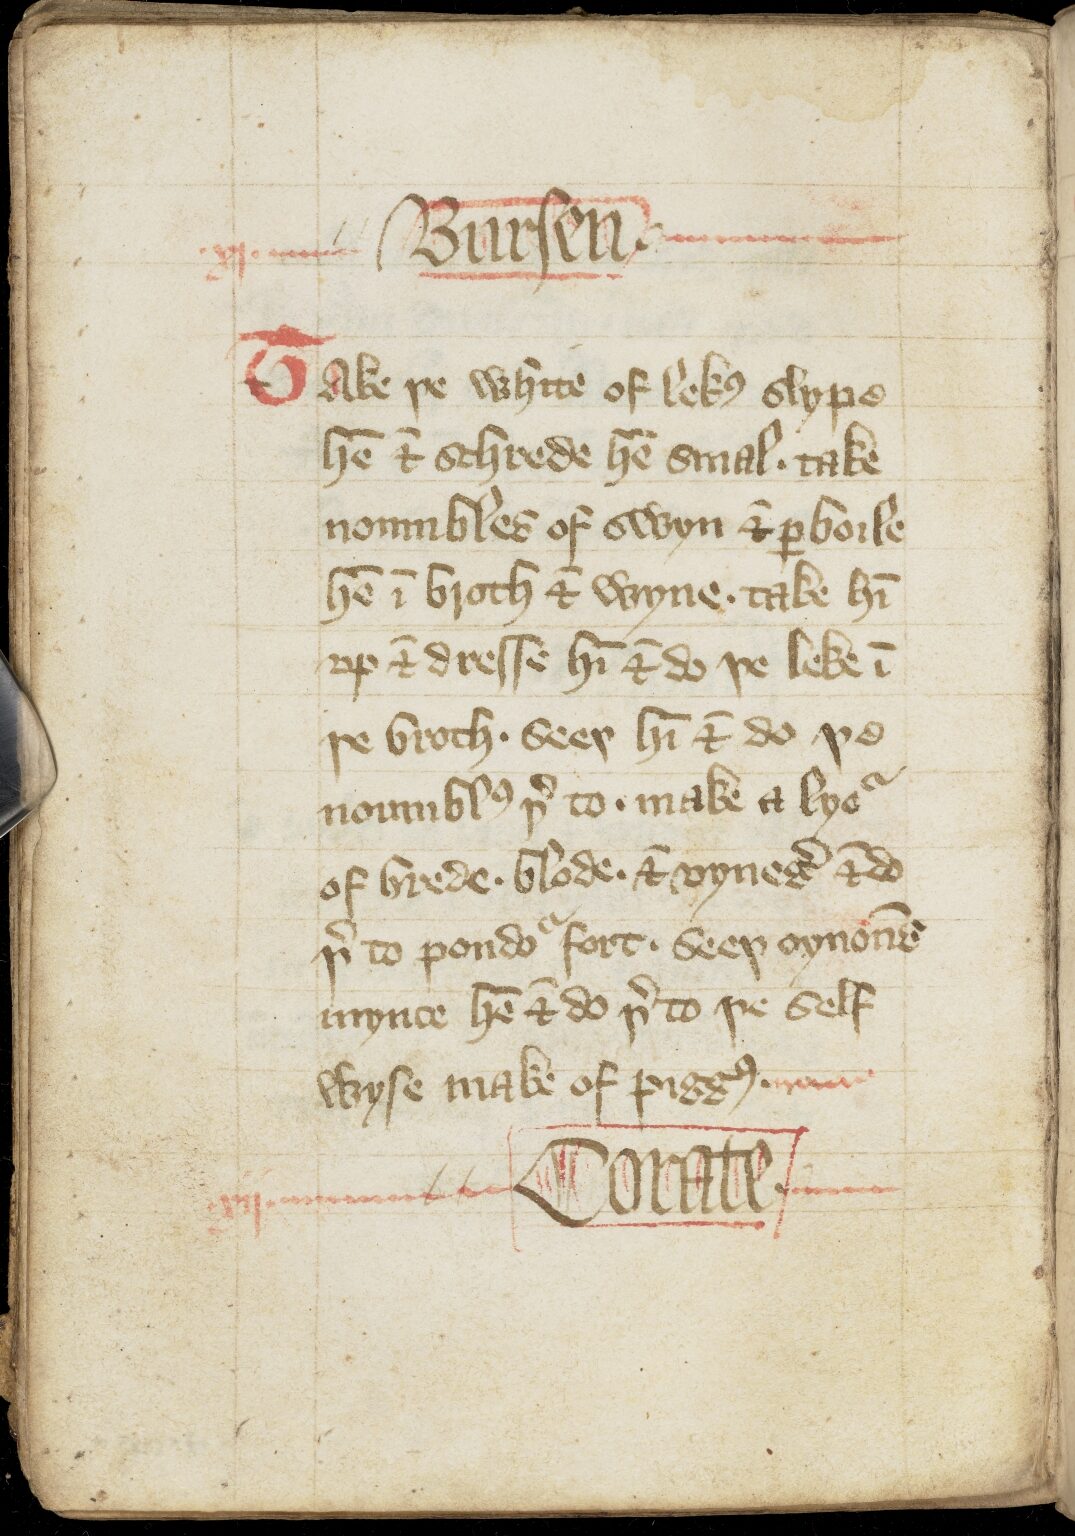 .xj. Bursen.
Take þe white of lekꝰ slype
hē ⁊ schrede hē smal. take
noumbles of swyn ⁊ ꝑboile
hē ī broth ⁊ wyne. take hī
vp ⁊ dresse hī ⁊ do þe leke ī
þe broth. seeþ hī ⁊ do þe
noumblꝰ þ͛ to. make a lyoᷓ
of brede. blode. ⁊ vyneg͛ ⁊ do
þ͛ to pondoᷓ fort. seeþ oynoñes
mynce hē ⁊ do þ͛ to þe self
wyse make of piggꝰ.
.xij. Corate.